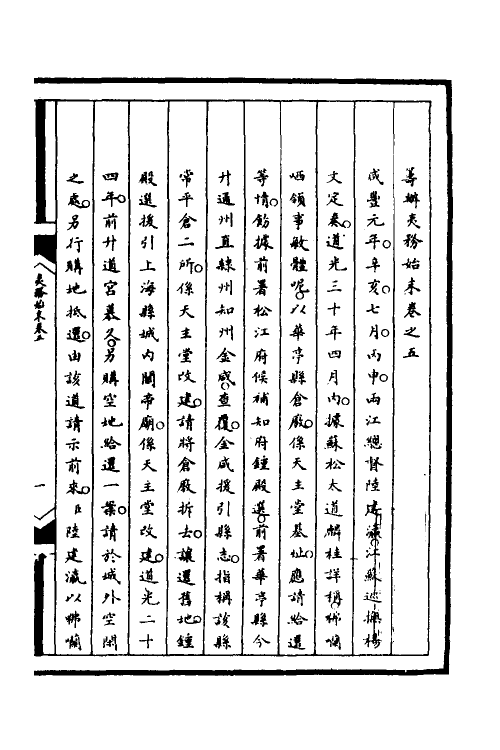 籌辦夷務始末卷之五
咸豐元年。辛亥。七月。丙申。兩江總督陸建瀛。江蘇巡撫楊
文定奏。道光三十年四月內。據蘇松太道麟桂詳稱。咈囒
哂領事敏體呢。以華亭縣倉廒。係天主堂基址。應請給還
等情。飭據前署松江府候補知府鍾殿選。前署華亭縣今
升通州直隸州知州金咸查覆。金咸援引縣志。指稱該縣
常平倉二所。係天主堂改建。請將倉廒拆去。讓還舊地。鍾
殿選援引上海縣城內關帝廟。係天主堂改建。道光二十
四年。前升道宮慕久。另購空地給還一案。請於城外空閑
之處。另行購地抵還。由該道請示前來。臣陸建瀛以咈囒
夷務始末卷五
一